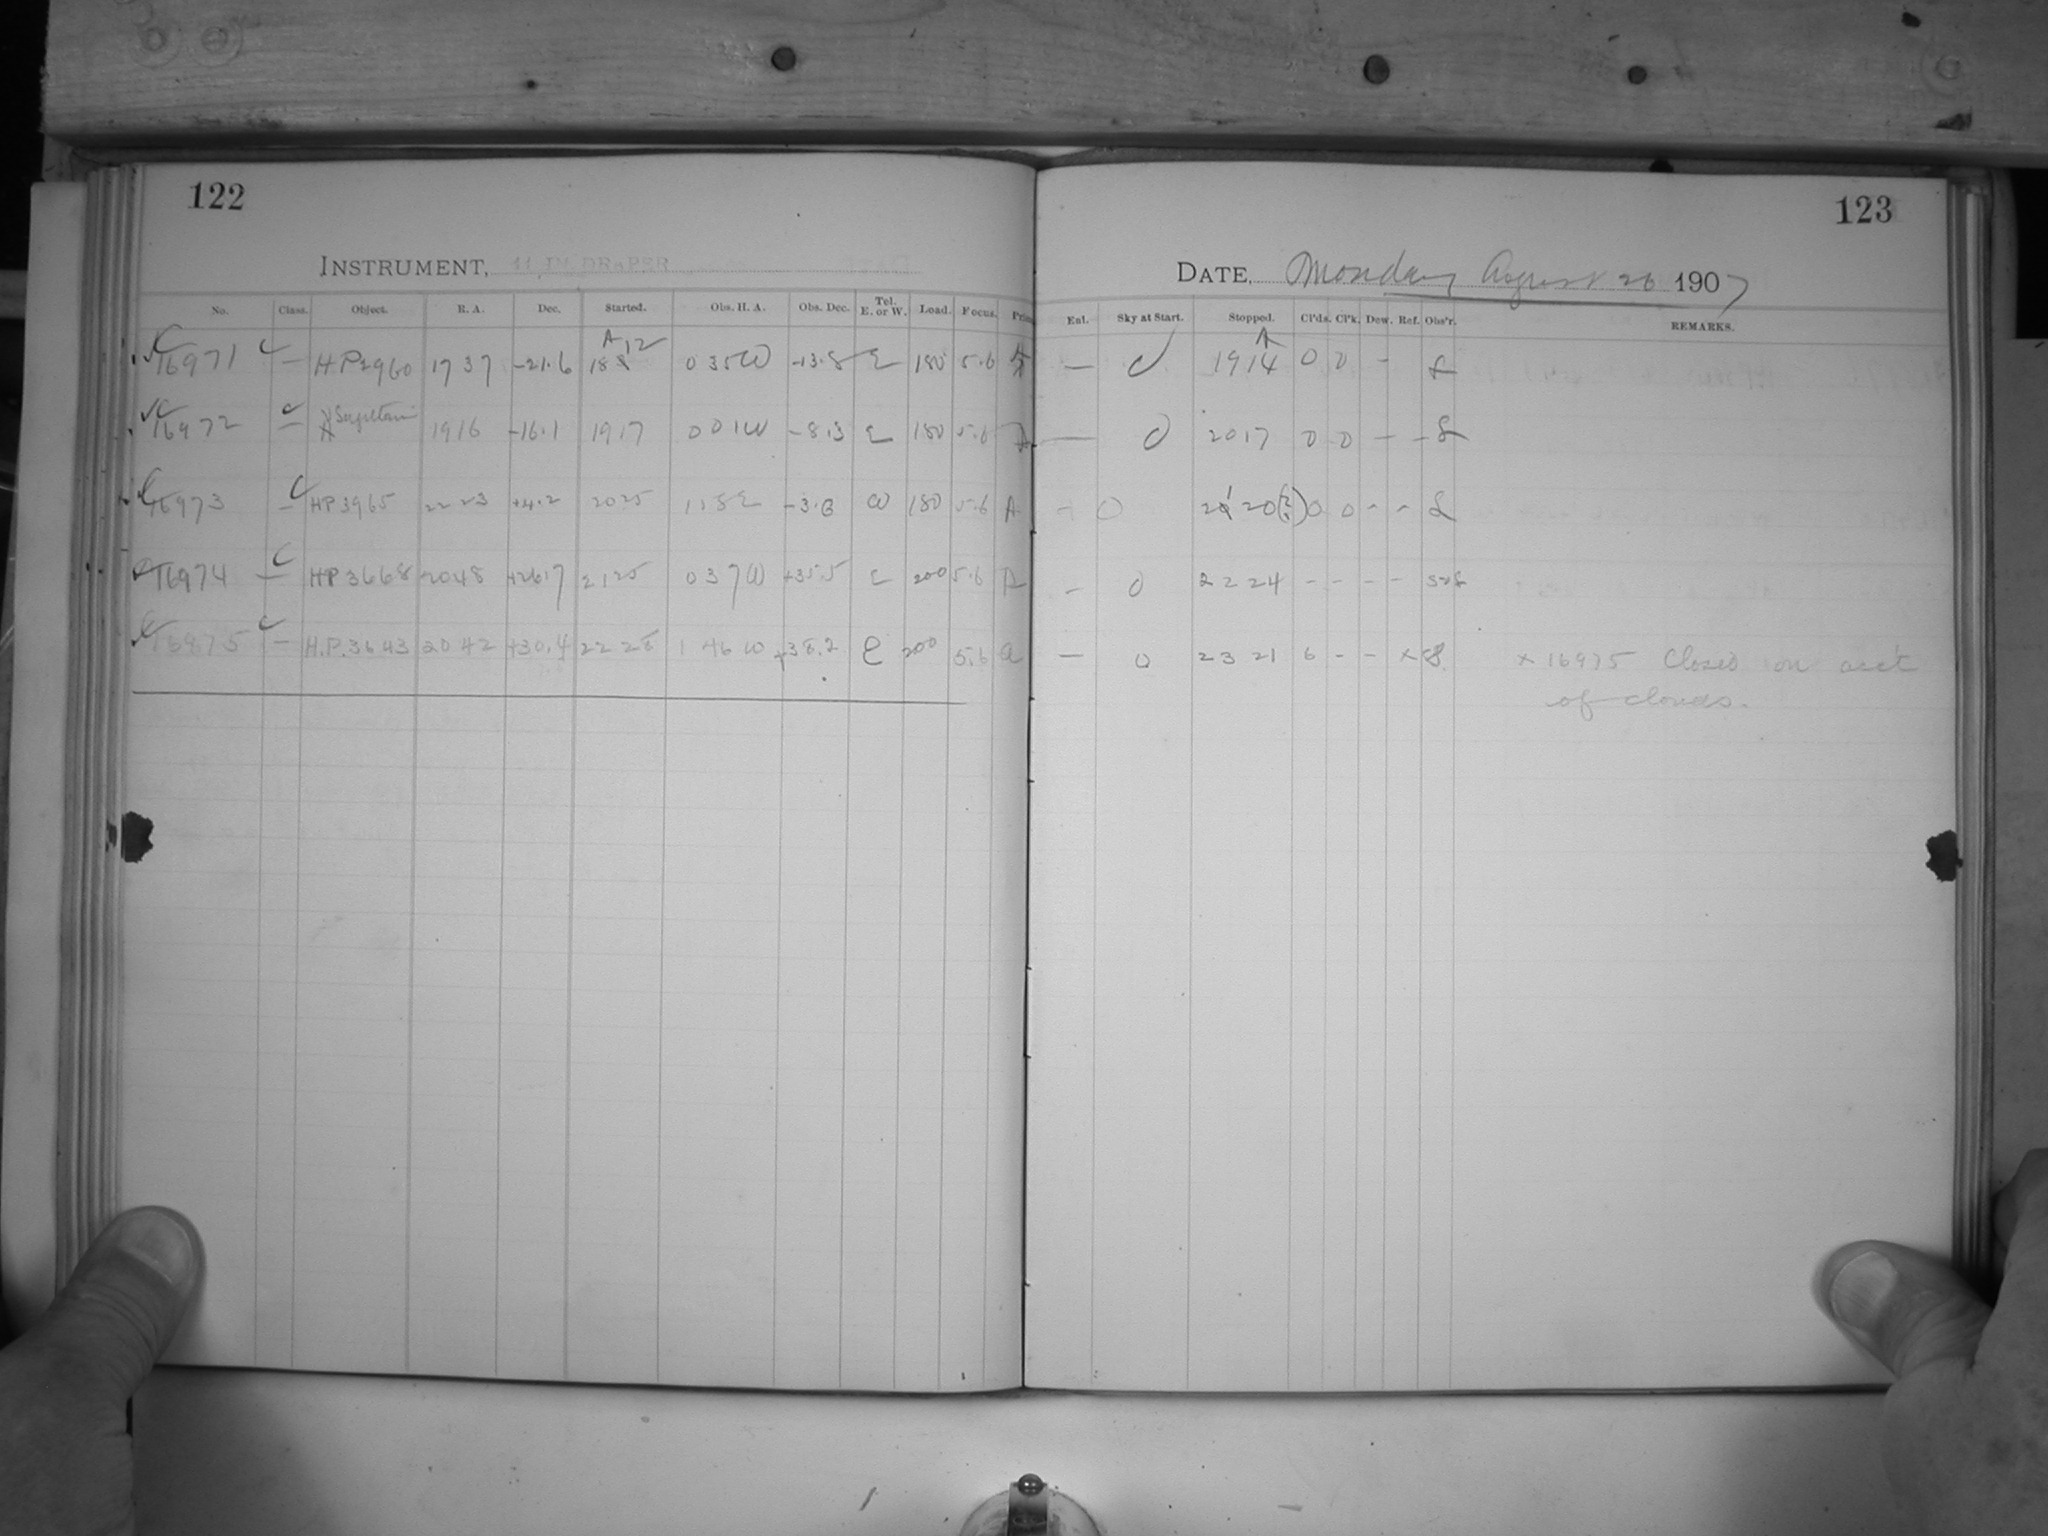 122
123
INSTRUMENT, 11 IN. DRAPER
DATE, Monday August 26 1907
No. Class. Object. R. A. Dec. Started. Obs. H. A. Obs. Dec. Tel. E. or W. Load. Focus. Prism
Enl. Sky at Start. Stopped. Cl'ds. Cl'k. Dew. Ref. Obs'r. REMARKS.
16971 C — HP2960 17 37 -21.6 18 12 0 35 W -13.8 E 180 5.6 A — 0 19 14 0 0 -
16972 C — 19 16 -16.1 19 17 0 01 W -8.3 E 180 5.6 A — 0 20 17 0 0 — —
16973 C — HP3965 22 23 +4.2 20 25 1 58 E W 180 5.6 A - 0 21 20 (?) 0 0 - -
16974 C — HP 3668 20 48 +26.7 21 25 0 37 W +35.5 E 200 5.6 A - 0 22 24 - - - -
16975 C — H.P. 3643 20 42 +30.4 22 28 1 46 W +38.2 E 200 5.6 A — 0 23 21 6 - - x × 16975 Closed on acc't
of clouds.